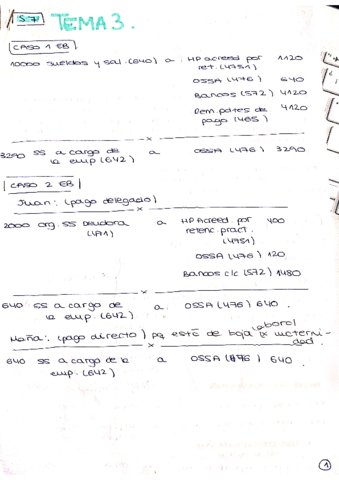 TEMA 3.
CASO 1 EB
10000 sueldos y sal. (640) a HP acreed por 1120
ret. (4751)
OSSA (476) 640
Bancos (572) 4120
Rem. pdtes de 4120
pago (465)
x
3290 SS a cargo de a OSSA (476) 3290
la emp (642)
CASO 2 EB
Juan: (pago delegado)
x
2000 org. SS deudora a HP Acreed por 400
(471) retenc. pract.
(4751)
OSSA (476) 120
Bancos c/c (572) 1480
x
640 SS a cargo de a OSSA (476) 640.
la emp. (642)
laboral
María: (pago directo) pq está de baja x materni-
dad
x
640 SS a cargo de la a OSSA (476) 640.
emp. (642)
1